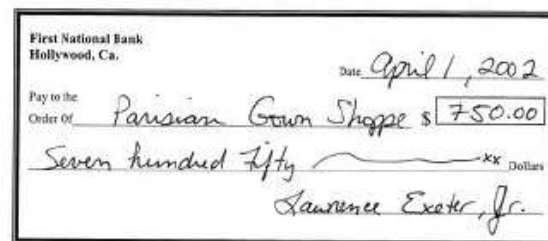 First National Bank
Hollywood, Ca.
Date April 1, 2002
Pay to the
Order Of Parisian Gown Shoppe $ 750.00
Seven hundred Fifty xx Dollars
Lawrence Exeter, Jr.